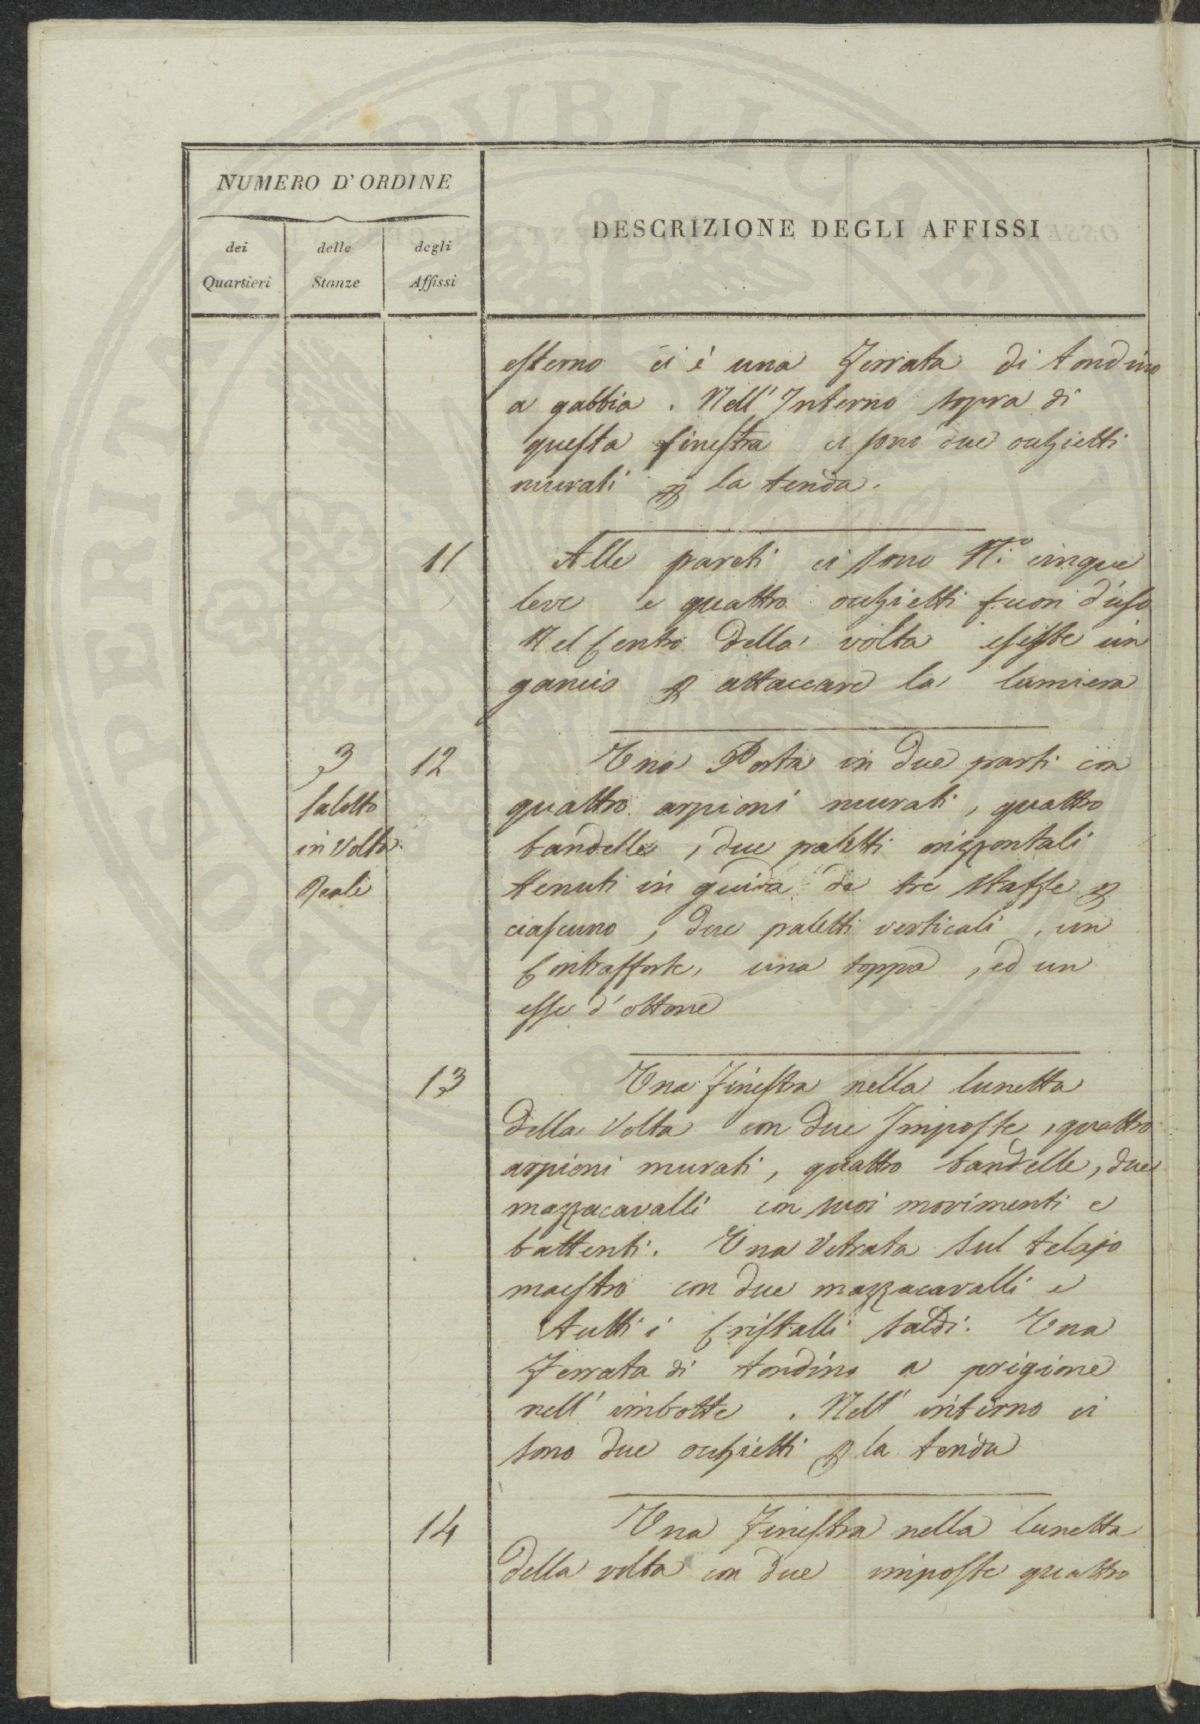 NUMERO D'ORDINE
dei Quartieri
delle Stanze
degli Affissi
DESCRIZIONE DEGLI AFFISSI
esterno ci è una Ferrata di tondino
a gabbia. Nell'Interno sopra di
questa finestra ci sono due ochietti
murati p la tenda.
11 Alle pareti ci sono N.o cinque
leve e quattro ochietti fuori d'uso
Nel Centro della volta esiste un
gancio p attaccare la lumiera
3 12 Una Porta in due parti con
Salotto quattro arpioni murati, quattro
in Volta bandelle, due paletti orizzontali
Reale tenuti in guida da tre staffe p
ciascuno, due paletti verticali, un
Contrafforte, una toppa, ed un
esse d'ottone
13 Una Finestra nella lunetta
della Volta con due Imposte, quattro
arpioni murati, quattro bandelle, due
mazzacavalli con suoi movimenti e
battenti. Una Vetrata sul telajo
maestro con due mazzacavalli e
tutti i Cristalli saldi. Una
Ferrata di tondino a prigione
nell'imbotte. Nell'interno ci
sono due ochietti p la tenda
14 Una Finestra nella lunetta
della volta con due imposte quattro